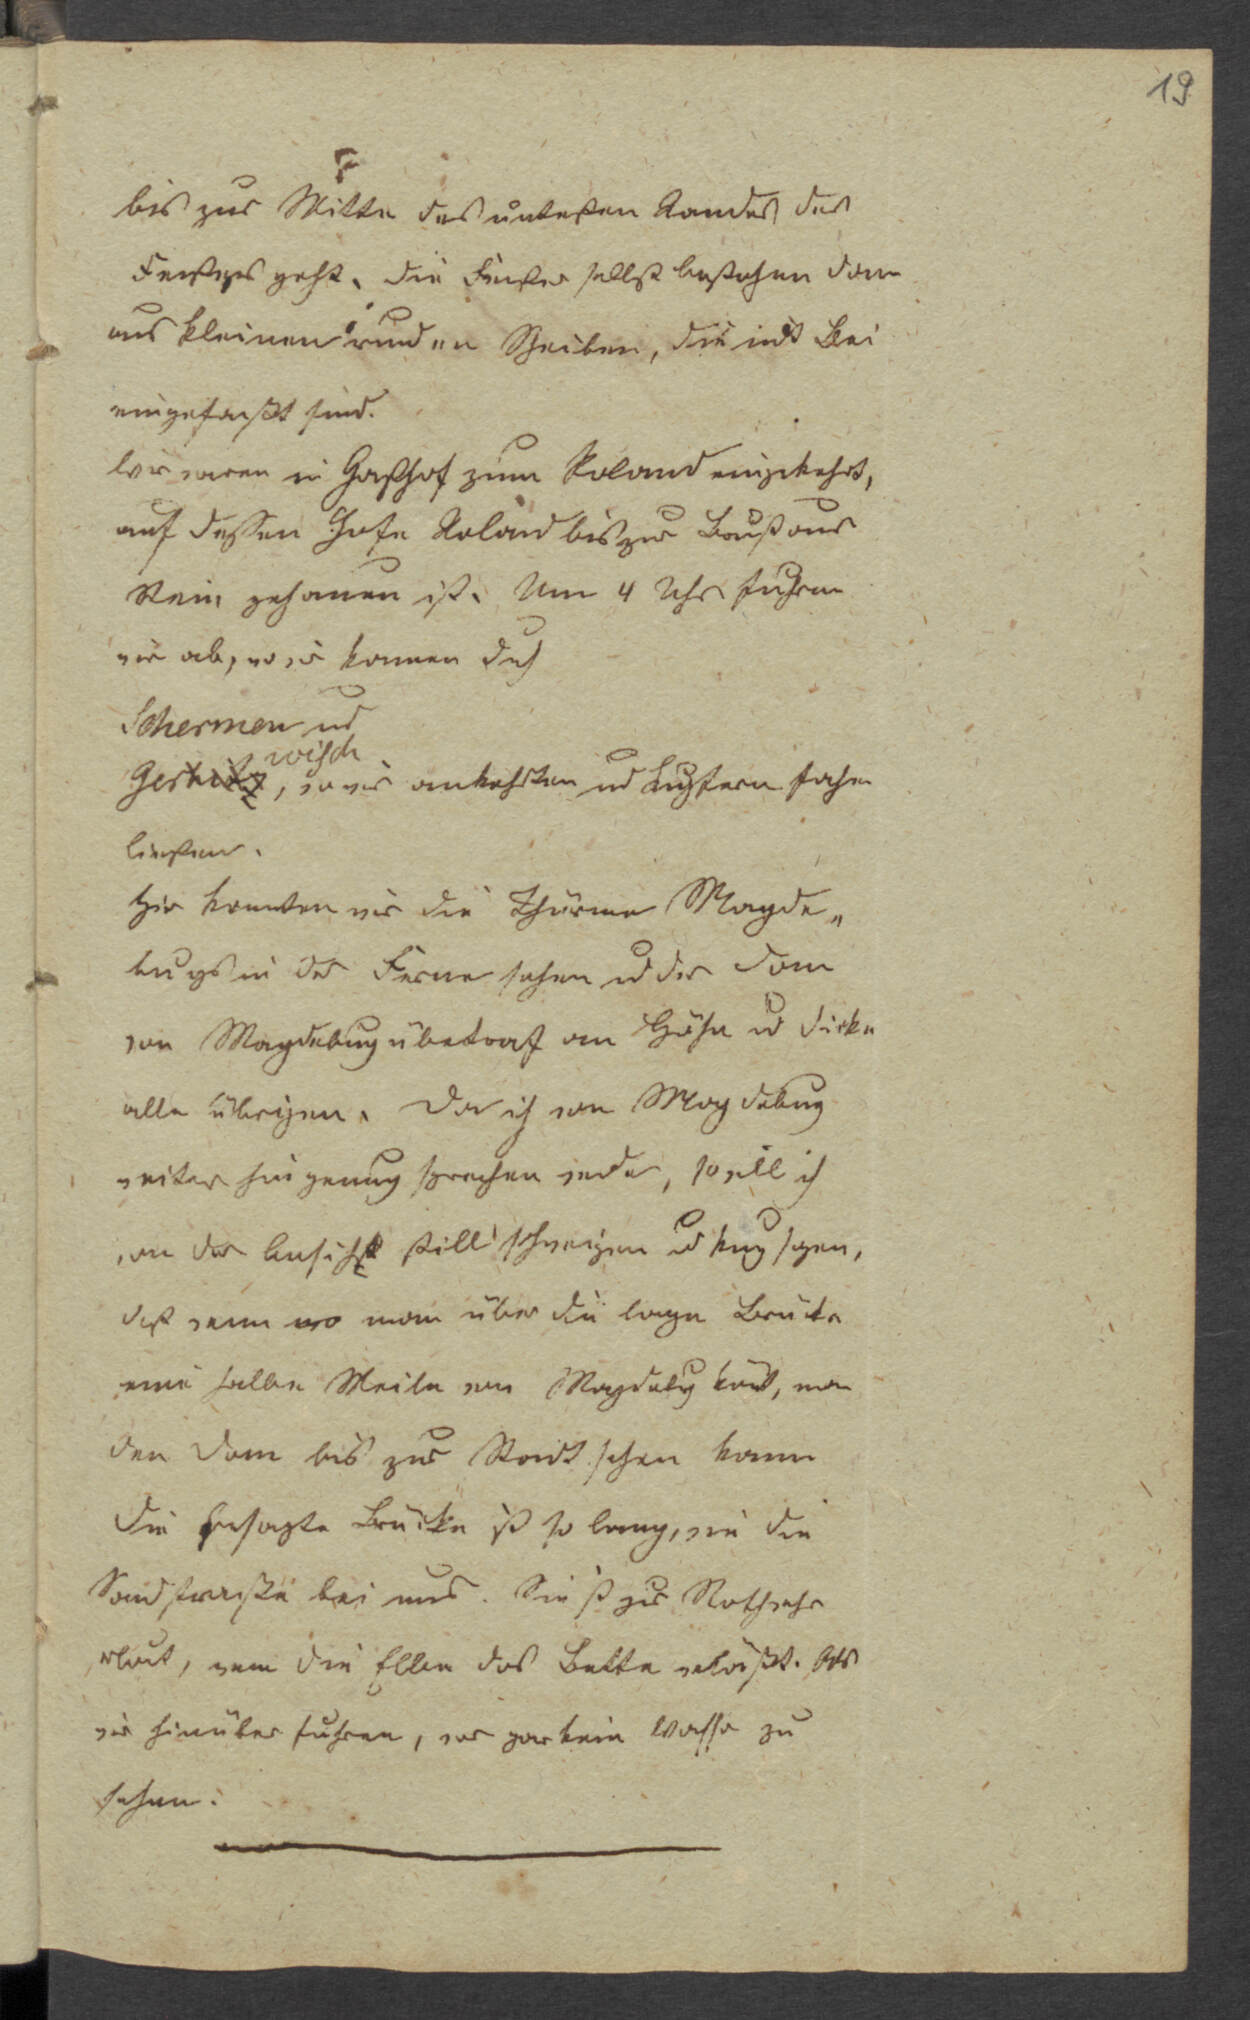 19
bis zur Mitte des untersten Randes des
Fensters geht. Die Fenster selbst bestehen dann
aus kleinen runden Scheiben, die mit Blei
eingefaßt sind.
Wir waren im Gasthof zum Roland eingekehrt,
auf dessen Hofe Roland bis zur Brust aus
Stein gehauen ist. Um 4 Uhr fuhren
wir ab, und kamen durch
Schermen und
Gerwisch, wo wir ankehrten und füttern
ließen.
Hier konnten wir die Thürme Magde„
burgs in der Ferne sehen und der Dom
von Magdeburg übertraf an Höhe und Dicke
alle übrigen. Da ich von Magdeburg
weiter hin genug sprechen werde, so will ich
von der Ansicht still schweigen und kurz sagen,
daß wenn man über die lange Brücke
eine halbe Meile von Magdeburg kömt, man
den Dom bis zur Stadt sehen kann
Die besagte Brücke ist so lang, wie die
Sandstraße bei uns. Sie ist zur Nothwehr
erbaut, wenn die Elbe das Bette verläßt. Als
wir hinüber fuhren, war gar kein Wasser zu
sehen.